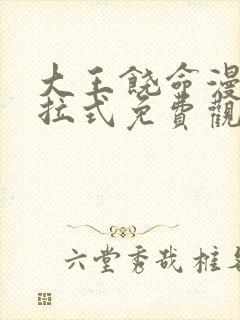 大王饶命漫
拉式免費觀
六堂秀哉桩